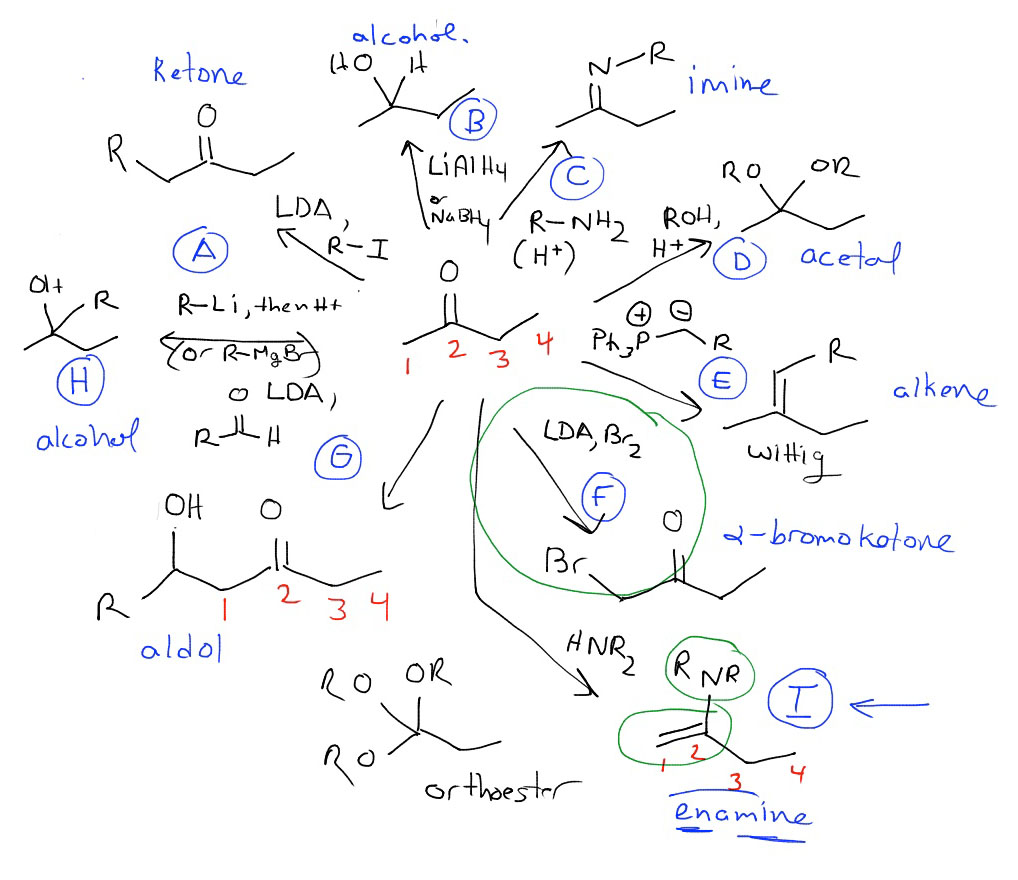 alcohol.
Ketone
HO H
N R
imine
O
R
B
LiAlH4
or
NaBH4
C
R-NH2
(H+)
RO OR
ROH,
H+
D
acetal
LDA,
R-I
A
O
1 2 3 4
OH
R
R-Li, then H+
(or R-MgBr)
H
alcohol
O LDA,
R H
G
+ -
Ph3P R
E
R
alkene
Wittig
LDA, Br2
F
O
Br
α-bromoketone
OH O
R 1 2 3 4
aldol
HNR2
R NR
I
1 2 3 4
enamine
RO OR
RO
orthoester